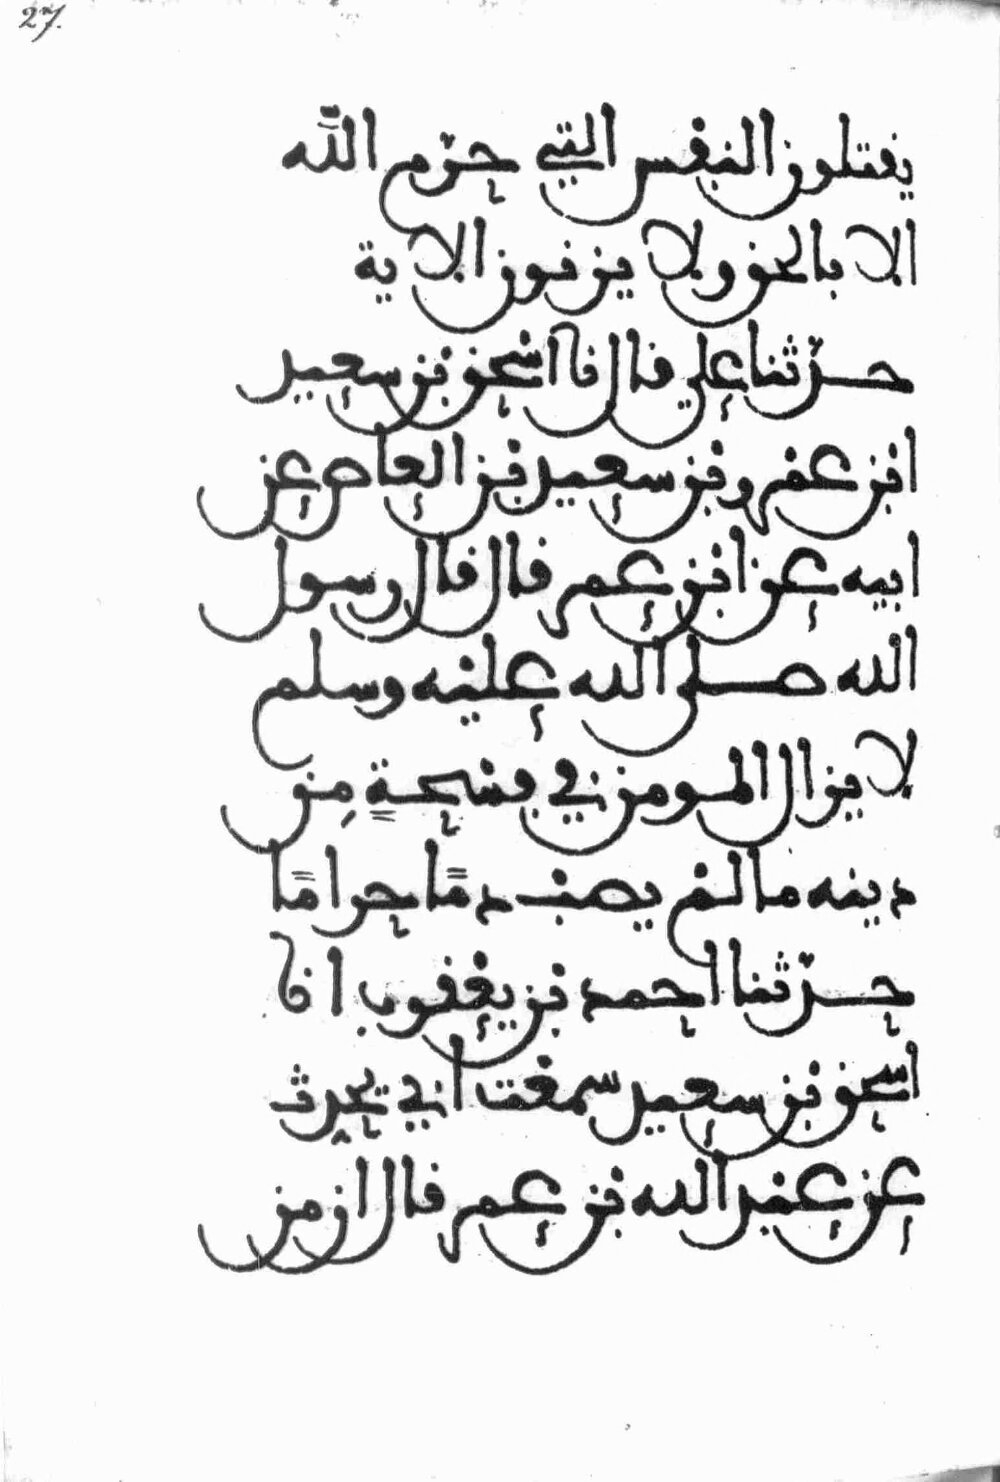 27.
يقتلون النفس التي حرّم اللّه
الا بالحق ولا يزنون الاية
حدّثنا علي قال نا اسحق بن سعيد
ابن عمرو بن سعيد بن العاص عن
ابيه عن ابن عمر قال قال رسول
الله صلى الله عليه وسلم
لا يزال المومن في فسحةٍ مِن
دينه ما لم يصب دمًا حرامًا
حدّثنا احمد بن يعقوب انا
اسحق بن سعيد سمعت ابي يحدث
عن عبد الله بن عمر قال ان من